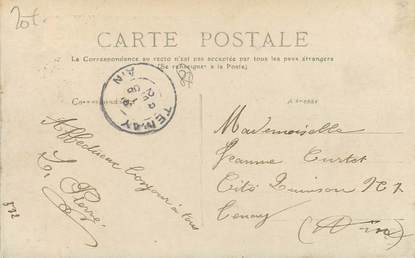 CARTE POSTALE
La Correspondance au recto n'est pas acceptée par tous les pays étrangers
(Se renseigner à la Poste)
Correspondance
ADRESSE
TENAY
AIN
Mademoiselle
Jeanne Curtet
Cité Quinson N° 1
Tenay
(Ain)
Affectueux bonjour à tous
Pierre